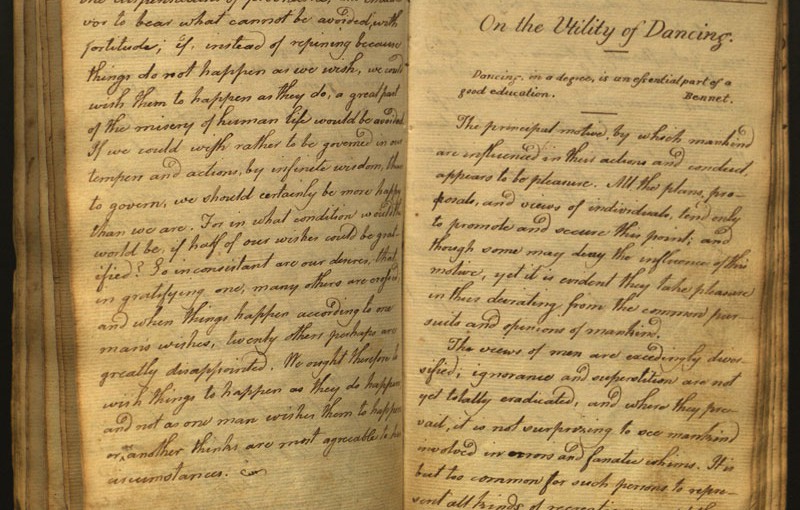 vor to bear what cannot be avoided, with
fortitude; if, instead of repining because
things do not happen as we wish, we could
wish them to happen as they do, a great part
of the misery of human life would be avoided.
If we could wish rather to be governed in our
temper and actions, by infinite wisdom, than
to govern, we should certainly be more happy
than we are. For in what condition would the
world be, if half of our wishes could be grat-
ified? So inconsistant are our desires, that
in gratifying one, many others are crossed,
and when things happen according to one
man's wishes, twenty others perhaps are
greatly disappointed. We ought therefore to
wish things to happen as they do happen
and not as one man wishes them to happen
or as another thinks are most agreeable to his
circumstances.
On the Utility of Dancing.
Dancing, in a degree, is an essential part of a
good education. Bennet.
The principal motive, by which mankind
are influenced in their actions and conduct,
appears to be pleasure. All the plans, pro-
posals, and views of individuals, tend only
to promote and secure this point; and
though some may deny the influence of this
motive, yet it is evident they take pleasure
in their deviating from the common pur-
suits and opinions of mankind.
The views of men are exceedingly diver-
sified; ignorance and superstition are not
yet totally eradicated, and where they pre-
vail, it is not surprising to see mankind
involved in errors and fanatic whims. It is
but too common for such persons to repre-
sent all kinds of